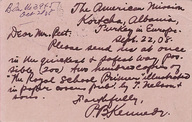 The American Mission
Kortcha, Albania,
Turkey in Europe.
Sept. 22, '08.
Dear Mr. Pest:
Please send us at once
in the quickest & safest way possible
(200) two hundred copies of
"The Royal School Primer" illustrated
in paper covers pub. by T. Nelson &
sons.
Faithfully,
P.B. Kennedy.